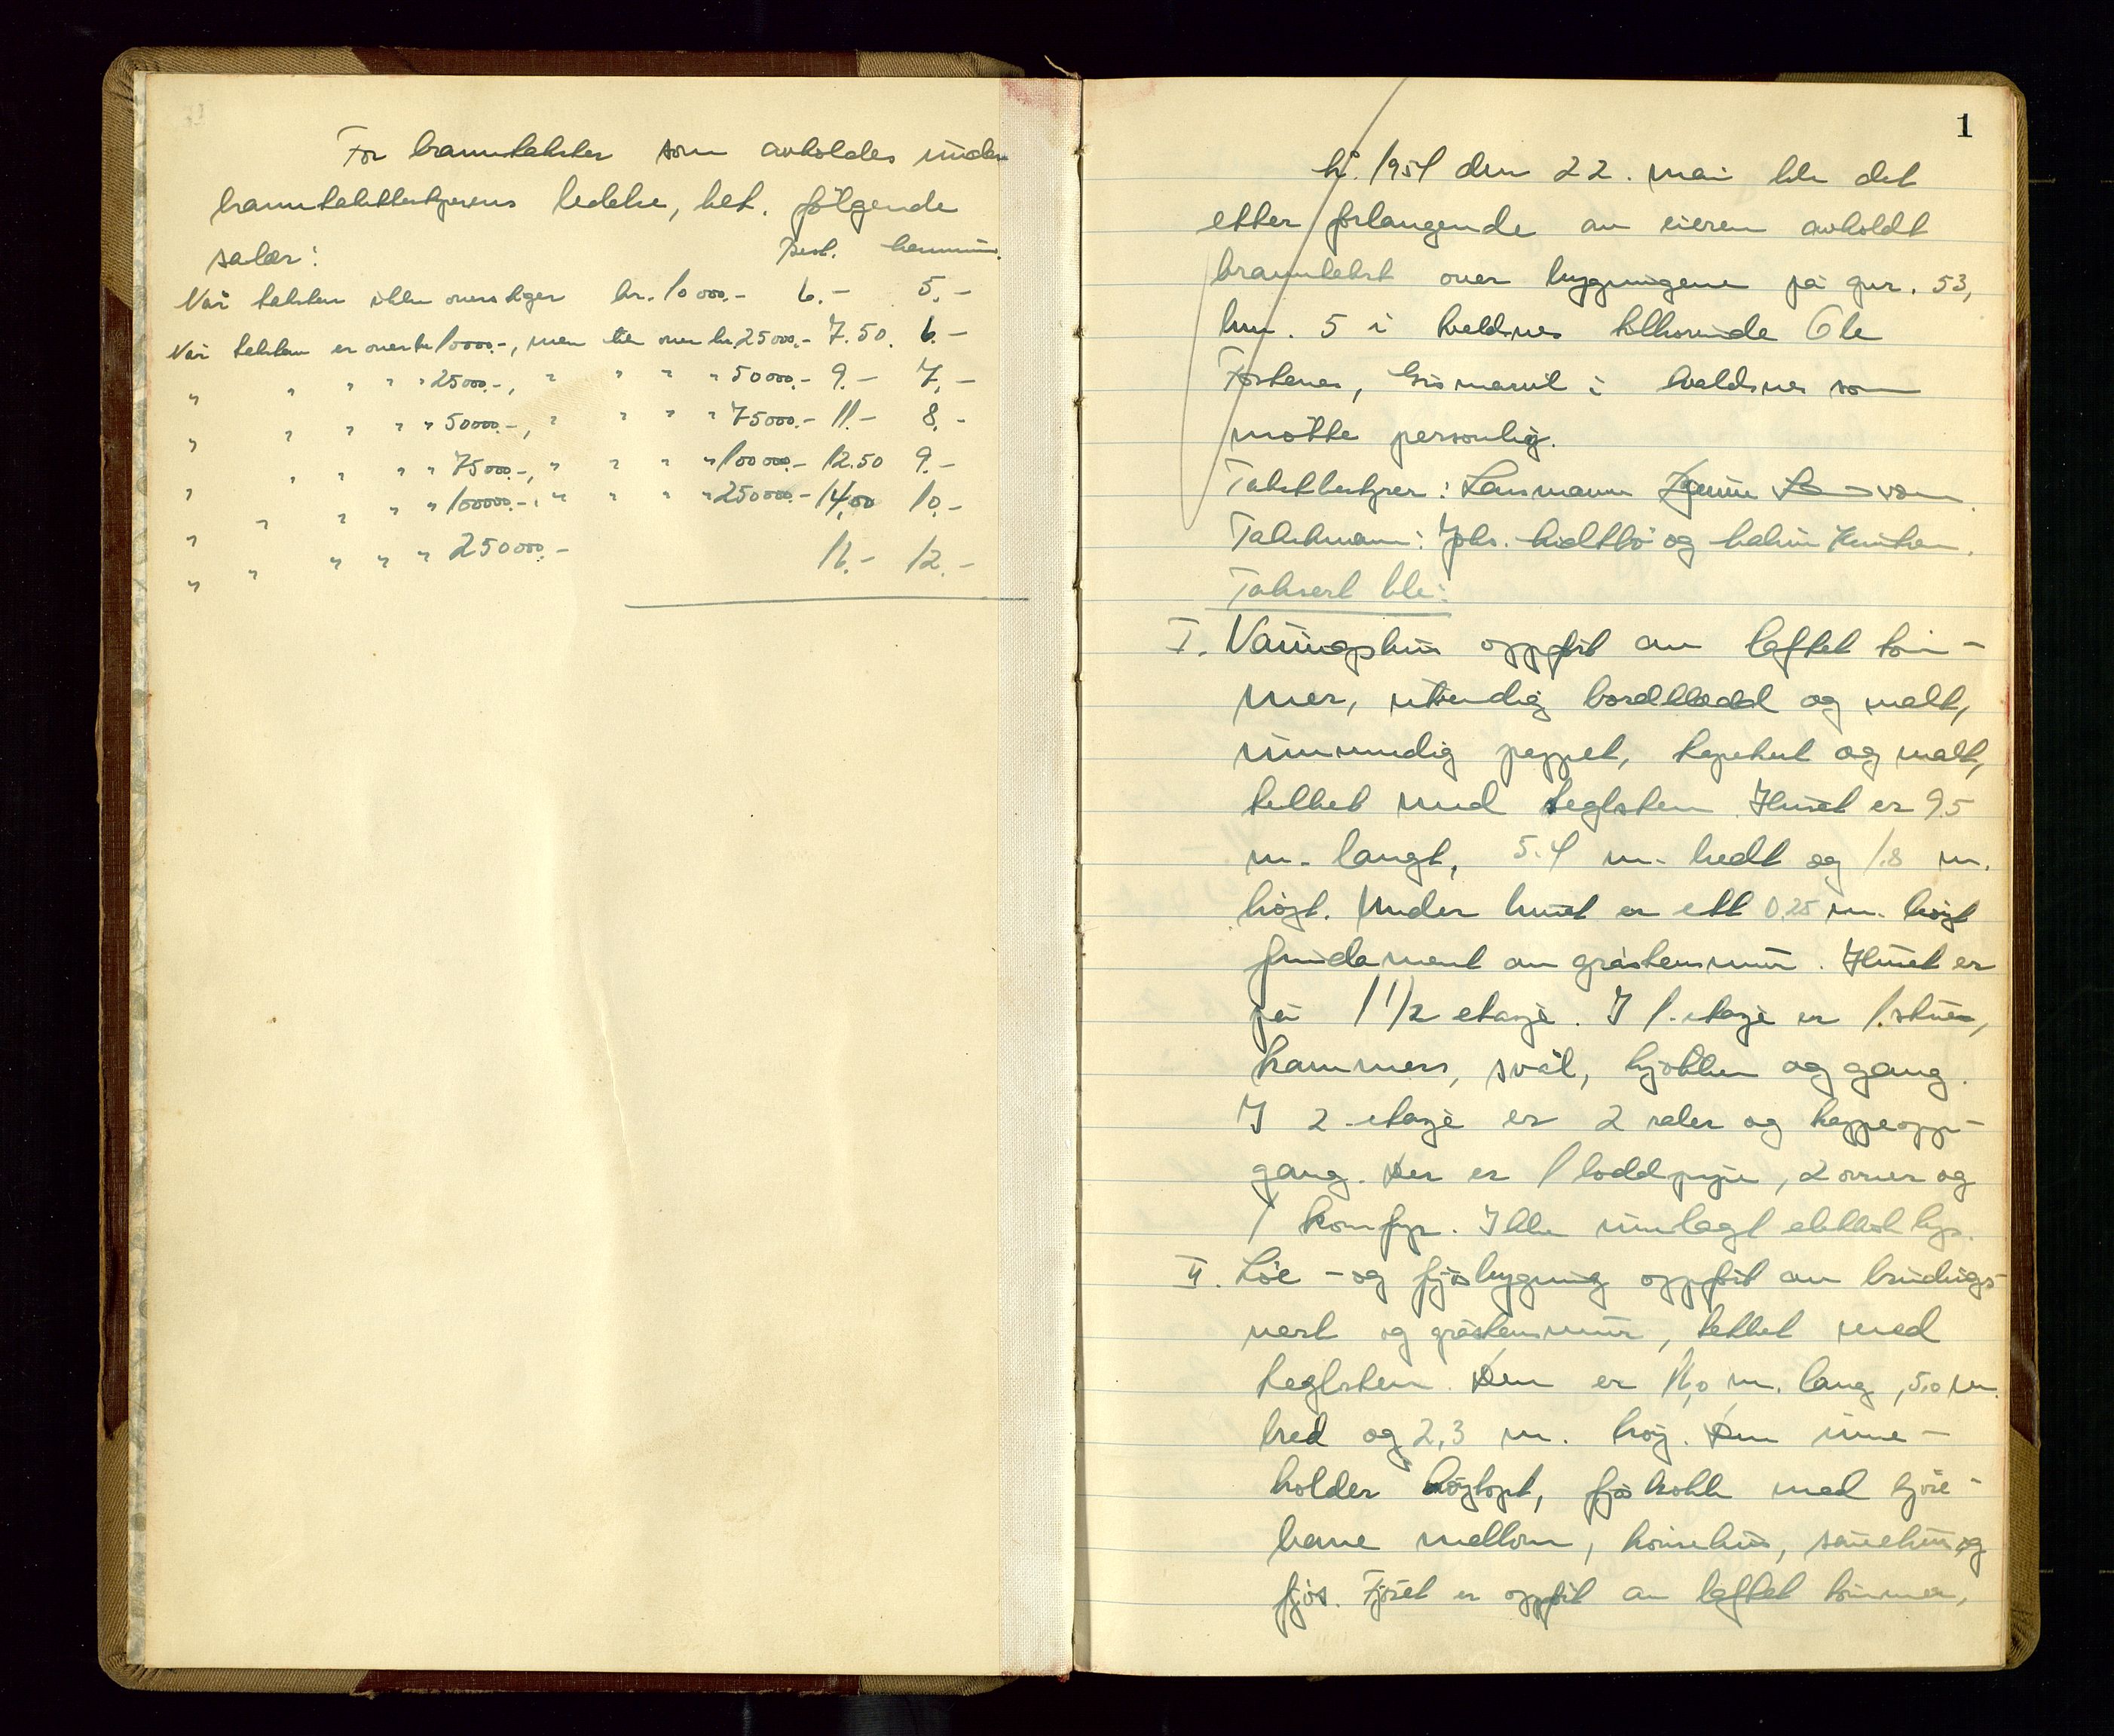 For branntakster som avholdes under
branntakstbestyrerens ledelse, bet. følgende
salær:
Best. Kommun.
Når taksten ikke overstiger kr. 10 000.- 6.- 5.-
Når taksten er over kr. 10000.-, men ikke over kr. 25000.- 7.50. 6.-
" " " " " 25000.-, " " " " 50000.- 9.- 7.-
" " " " " 50000.-, " " " " 75000.- 11.- 8.-
" " " " " 75000.-, " " " " 100000.- 12.50 9.-
" " " " " 100000.-, " " " " 250000.- 14,00 10.-
" " " " " 250000.- 16.- 12.-
1
År 1951 den 22. mai ble det
etter forlangende av eieren avholdt
branntakst over bygningene på gnr. 53,
bnr. 5 i Kvaldnes tilhørende Ole
i Kvaldnes som
møtte personlig.
Takstbestyrer: Lensmann
Takstmenn: Johs. og
Taksert ble:
I. Våningshus oppført av laftet tøm-
mer, utvendig bordkledd og malt,
innvendig pappet, tapetsert og malt,
tekket med teglsten. Huset er 9.5
m. langt, 5.4 m. bredt og 1.8 m.
høgt. Under huset er ett 0,25 m. høgt
fundament av gråstensmur. Huset er
på 1 1/2 etasje. I 1. etasje er 1. stue,
kammers, svål, kjøkken og gang.
I 2 etasje er 2 saler og trappeopp-
gang. Der er 1 loddpipe, 2 ovner og
1 komfyr. Ikke innlagt elektrisk lys.
II. Løe - og fjøsbygning oppført av bindings-
verk og gråstensmur, tekket med
teglsten. Den er 16,0 m. lang, 5,0 m.
bred og 2,3 m. høg. Den inne-
holder med kjøre-
bane mellom, hønsehus, sauehus og
fjøs. Fjøset er oppført av laftet tømmer,